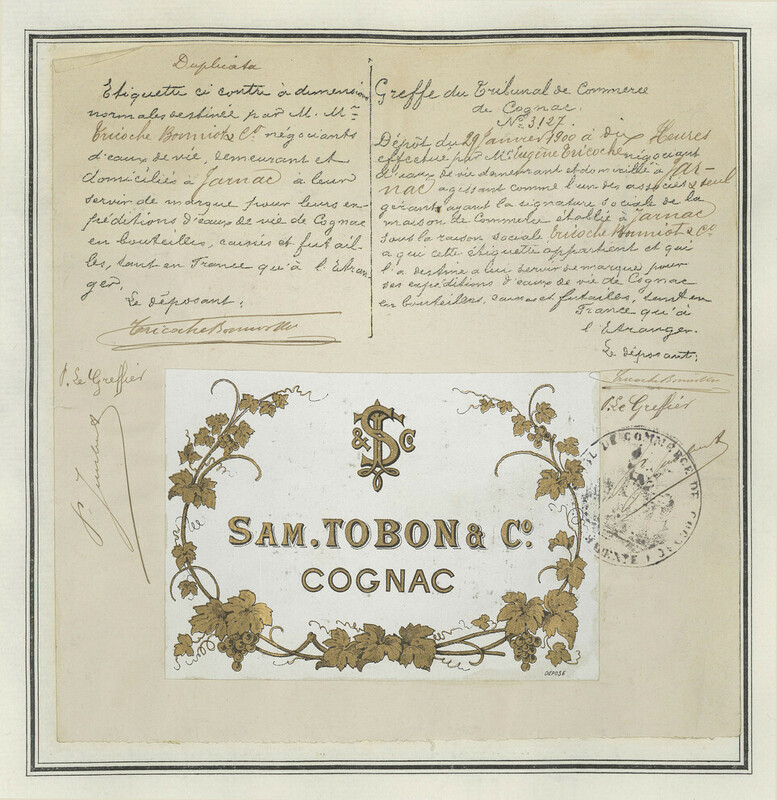 Duplicata
Etiquette ci contre à dimensions
normales destinée par M. Mrs
Tricoche Bonniot & Co négociants
d'eaux de vie, demeurant et
domiciliés à Jarnac à leur
servir de marque pour leurs ex-
péditions d'eaux de vie de Cognac
en bouteilles, caisses et futail-
les, tant en France qu'à l'Etran-
ger.
Le déposant:
Tricoche Bonniot & Co
P. Le Greffier
Greffe du Tribunal de Commerce
de Cognac.
No 3127.
Dépôt du 29 Janvier 1900 à dix Heures
effectué par Mr Eugène Tricoche négociant
d'eaux de vie demeurant et domicilié à Jar-
nac agissant comme l'un des associés & seul
gérant ayant la signature sociale de la
maison de Commerce établie à Jarnac
sous la raison sociale Tricoche Bonniot & Co
a qui cette étiquette appartient et qui
l'a destine a leur servir de marque pour
ses expéditions d'eaux de vie de Cognac
en bouteilles, caisses et futailles, tant en
France qu'à
l'Etranger.
Le déposant:
Tricoche Bonniot & Co
P. Le Greffier
S & Co
SAM. TOBON & Co.
COGNAC
DÉPOSÉ
DE COMMERCE DE COGNAC